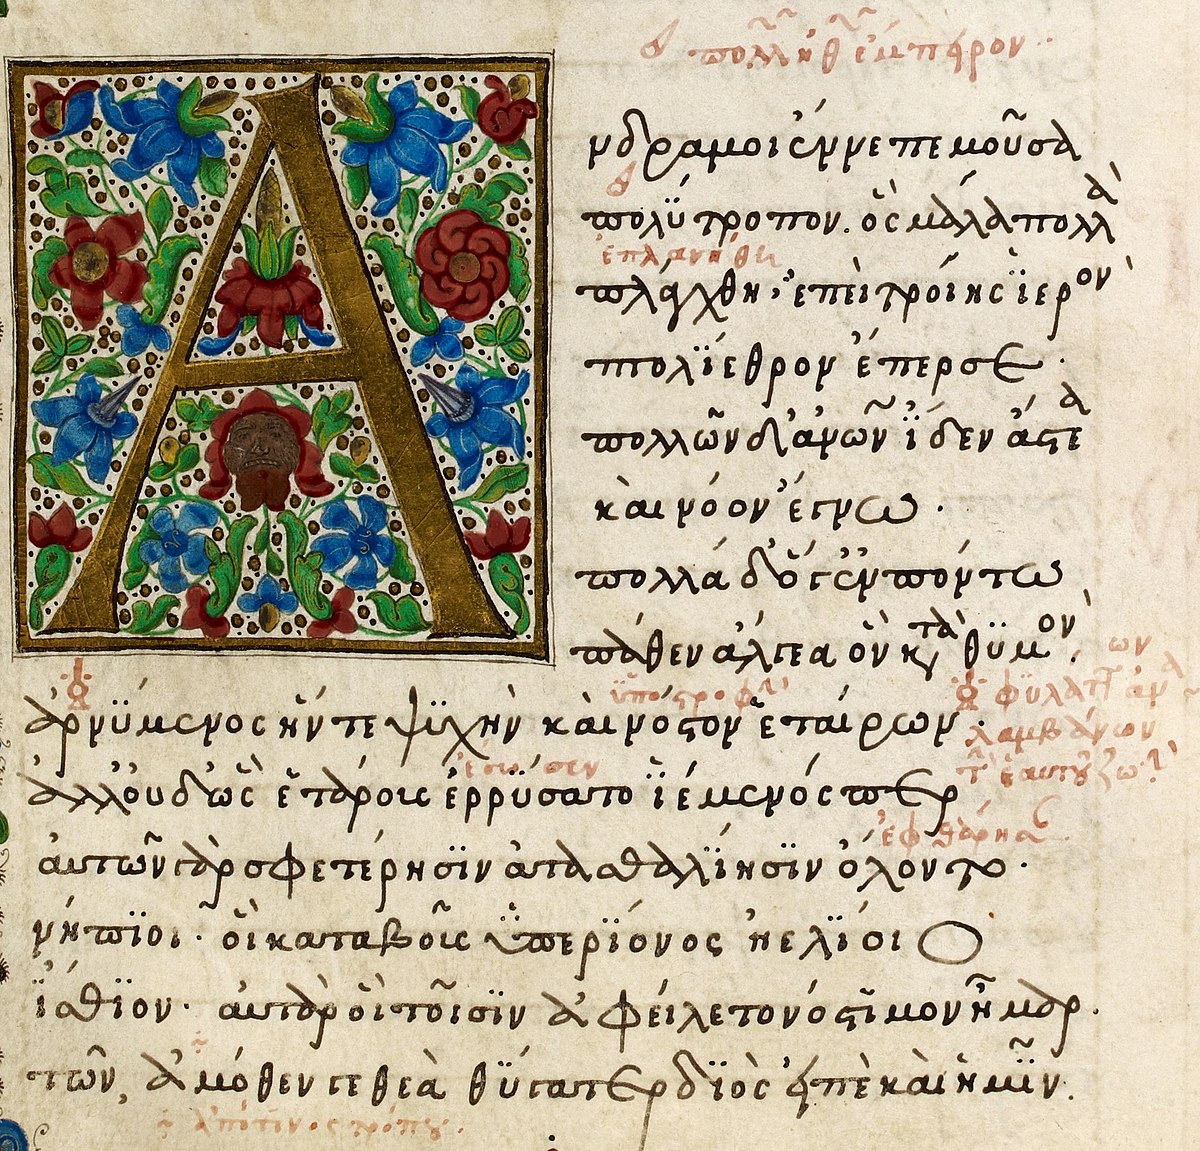 πολλ ἔμπειρον
Ἄνδρα μοι ἔννεπε μοῦσα
πολύτροπον. ὃς μάλα πολλὰ
ἐπλανήθη
πλάγχθη, ἐπεὶ τροίης ϊερὸν
πτολϊεθρον ἔπερσε.
πολλῶν δ' ἀνῶν ἴδεν ἄστεα
καὶ νόον ἔγνω.
πολλὰ δ' ὅγ' ἐν πόντω
πάθεν ἄλγεα ὃν κατὰ θϋμὸν.
ὑποστροφὴν
ἀρνϋμενος ἥν τε ψϋχὴν καὶ νοστον ἑταίρων.
λαμβάνων
ἔσωσεν
ἀλλ' ὀυδ' ὧς ἑτάροις ἐρρϋσατο ϊέμενός περ
ἐφθάρησαν
ἀυτῶν γὰρ σφετέρησϊν ἀτασθαλίησϊν ὄλοντο.
νήπϊοι. οἳ κατα βοῦς ὑπερϊόνος ἠελΐοιο
ἤσθϊον. ἀυτὰρ ὃ τοῖσϊν ἀφείλετο νόστϊμον ἦμαρ.
τῶν, ἁμόθεν γε θεὰ θϋγατερ δϊὸς εἰπὲ καὶ ἡμῖν.
ἀπό τινος τρόπου.